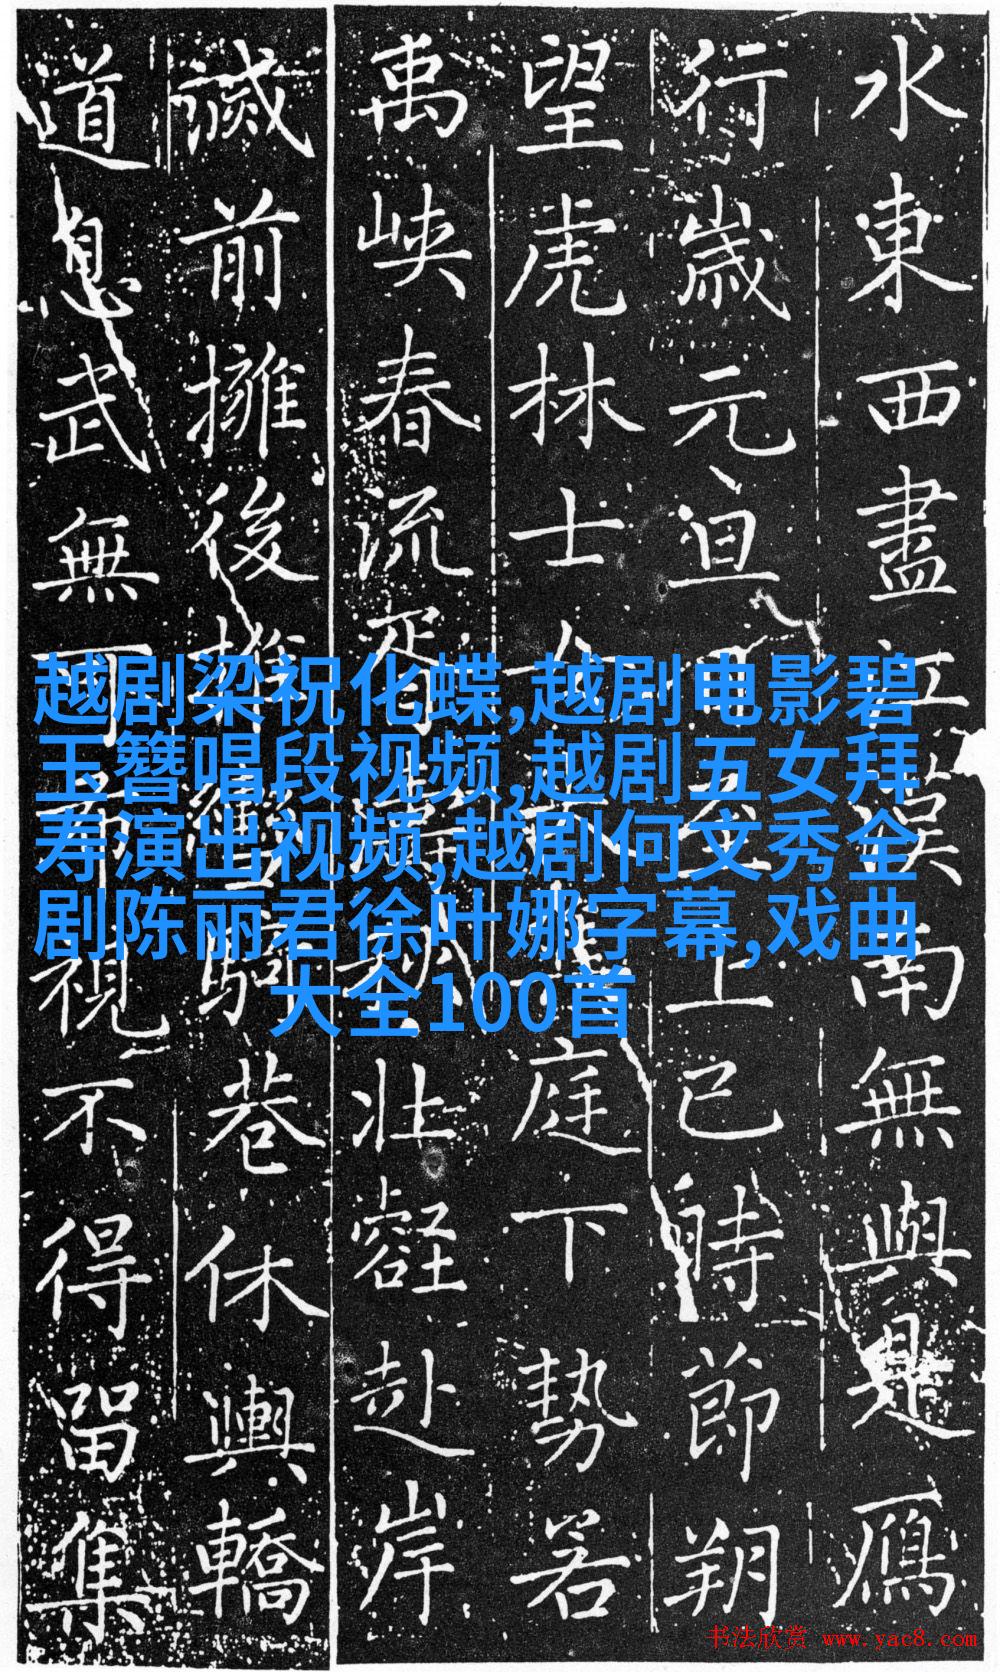 水東西盡江漢南無與是鴈
行歲元旦至上巳時節朔
望虎林士女庭下勢若
禹峽春流胥秋壯壑赴岸
前擁後推騎巷休輿轎
道息武無可視不得留集
越剧梁祝化蝶,越剧电影碧
玉簪唱段视频,越剧五女拜
寿演出视频,越剧何文秀全
剧陈丽君徐叶娜字幕,戏曲
大全100首
书法欣赏 www.yac8.com